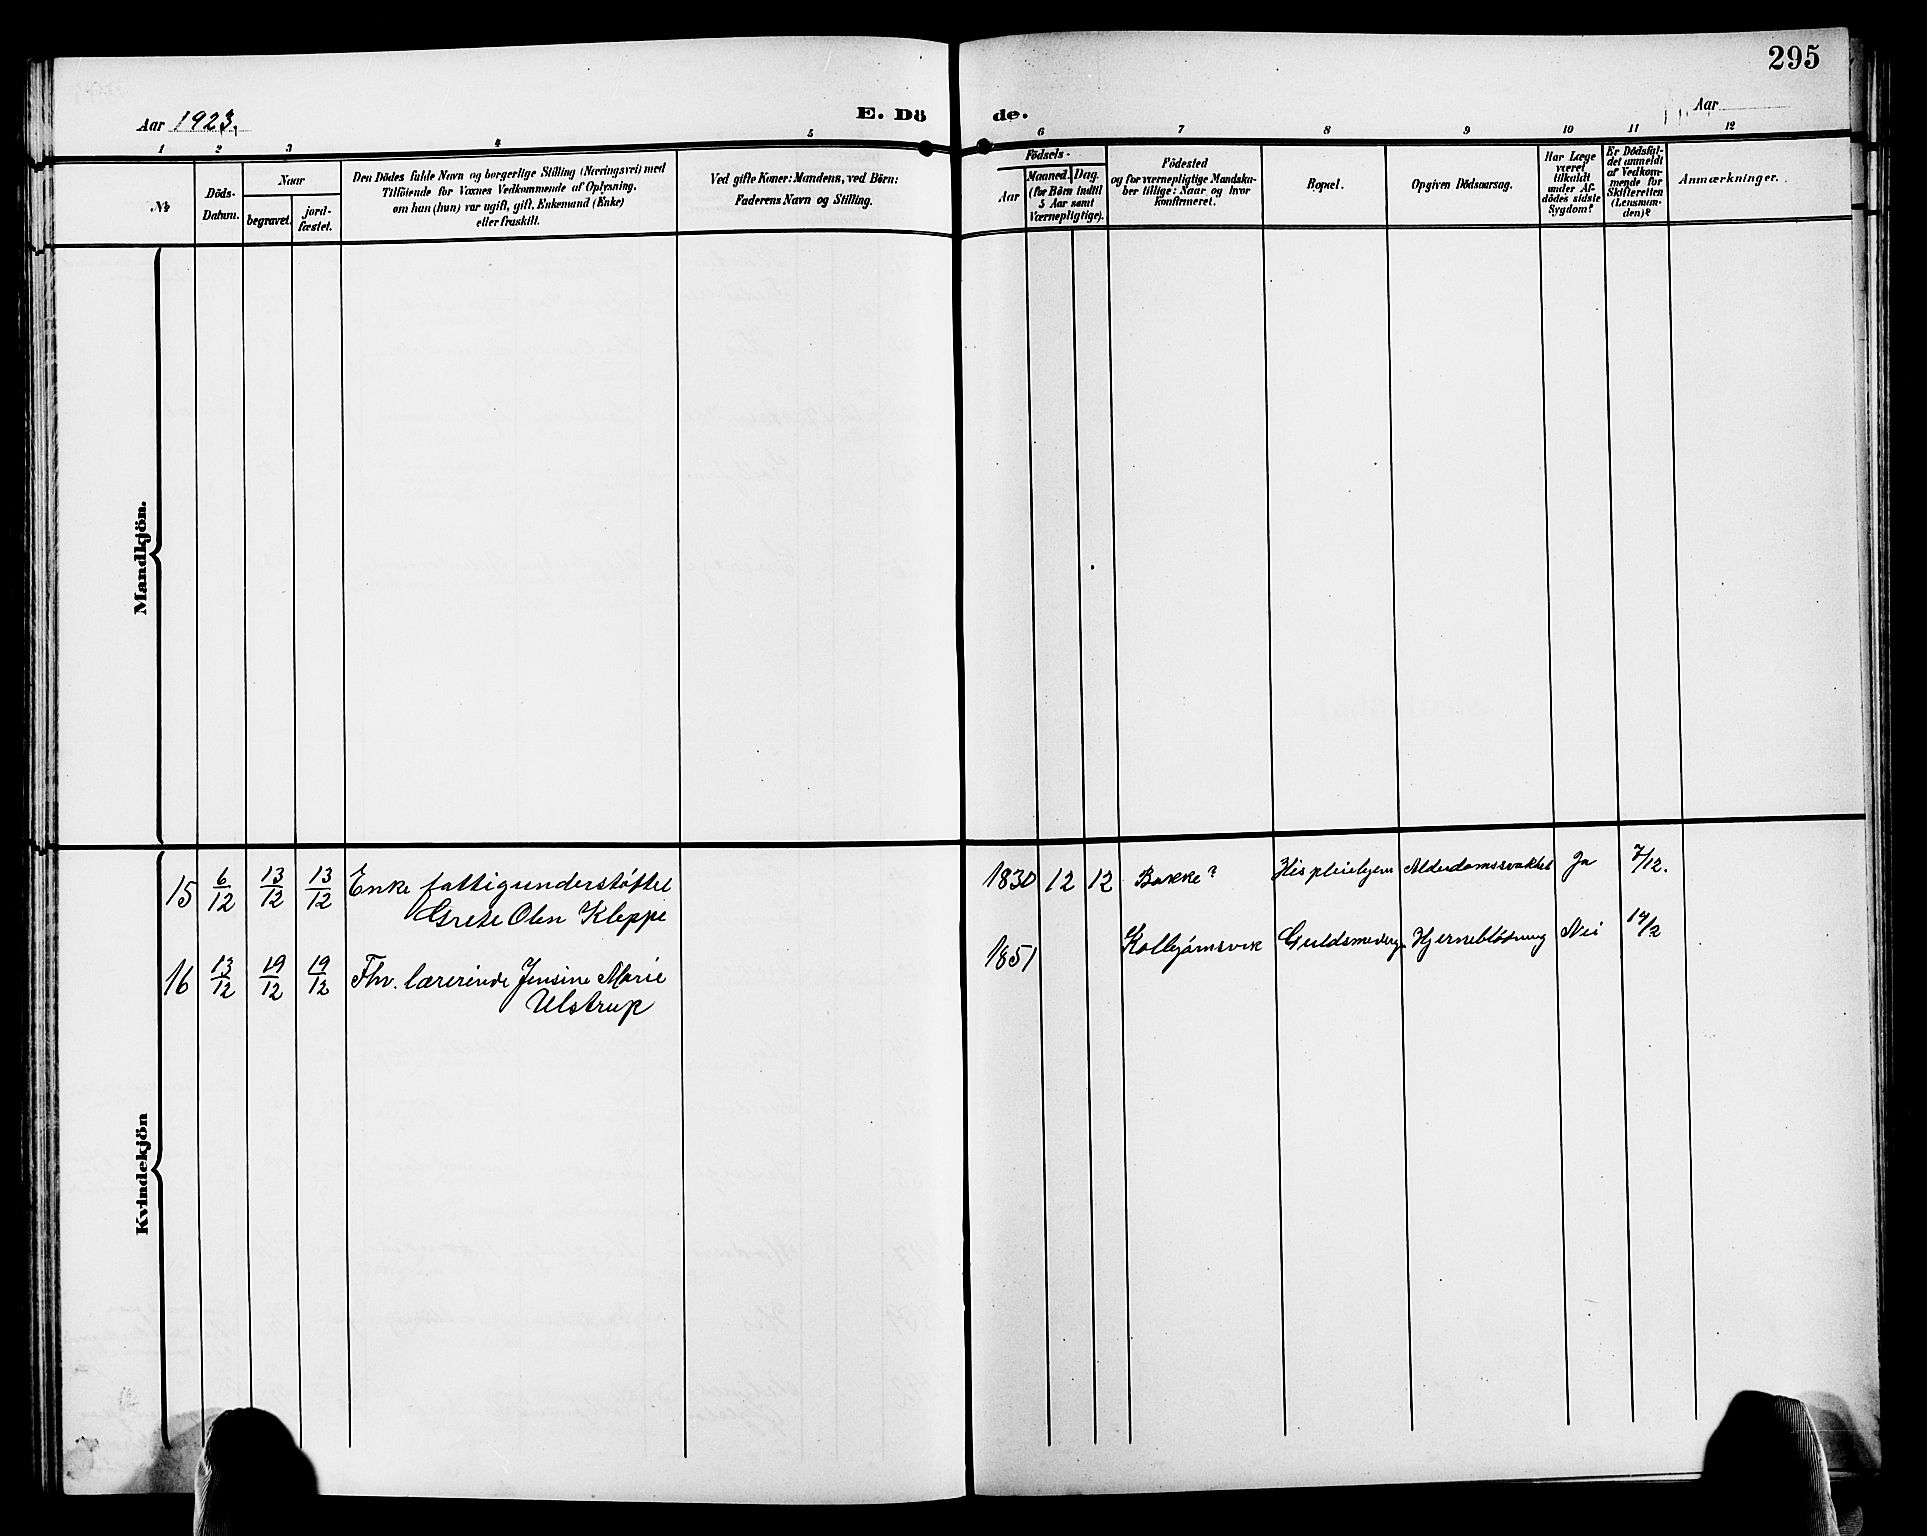 295
Aar 1923.
E. Dö
de.
Aar
1 2 3 4 5 6 7 8 9 10 11 12
№
Döds-
Datum.
Naar
begravet.
jord-
fæstet.
Den Dödes fulde Navn og borgerlige Stilling (Næringsvei) med
Tilföiende for Voxnes Vedkommende af Oplysning,
om han (hun) var ugift, gift, Enkemand (Enke)
eller fraskilt.
Ved gifte Koner: Mandens, ved Börn:
Faderens Navn og Stilling.
Födsels-
Aar
Maaned. Dag.
(for Börn indtil
5 Aar samt
Værnepligtige).
Födested
og for værnepligtige Mandska-
ber tillige: Naar og hvor
konfirmeret.
Bopæl.
Opgiven Dödsaarsag.
Har Læge
været
tilkaldt
under Af-
dödes sidste
Sygdom?
Er Dödsfal-
det anmeldt
af Vedkom-
mende for
Skifteretten
(Lensman-
den)?
Anmærkninger.
Mandkjön.
Kvindekjön
15 6/12 13/12 13/12 Enke fattigunderstøttet
Grete Olen Kleppe
1830 12 12 Bakke? His pleiehjem Alderdomssvakhet Ja 7/12.
16 13/12 19/12 19/12 Fhv. lærerinde Jensine Marie
Ulstrup
1851 Kolbjørnsvik Guldsmedeng Hjerneblødning Nei